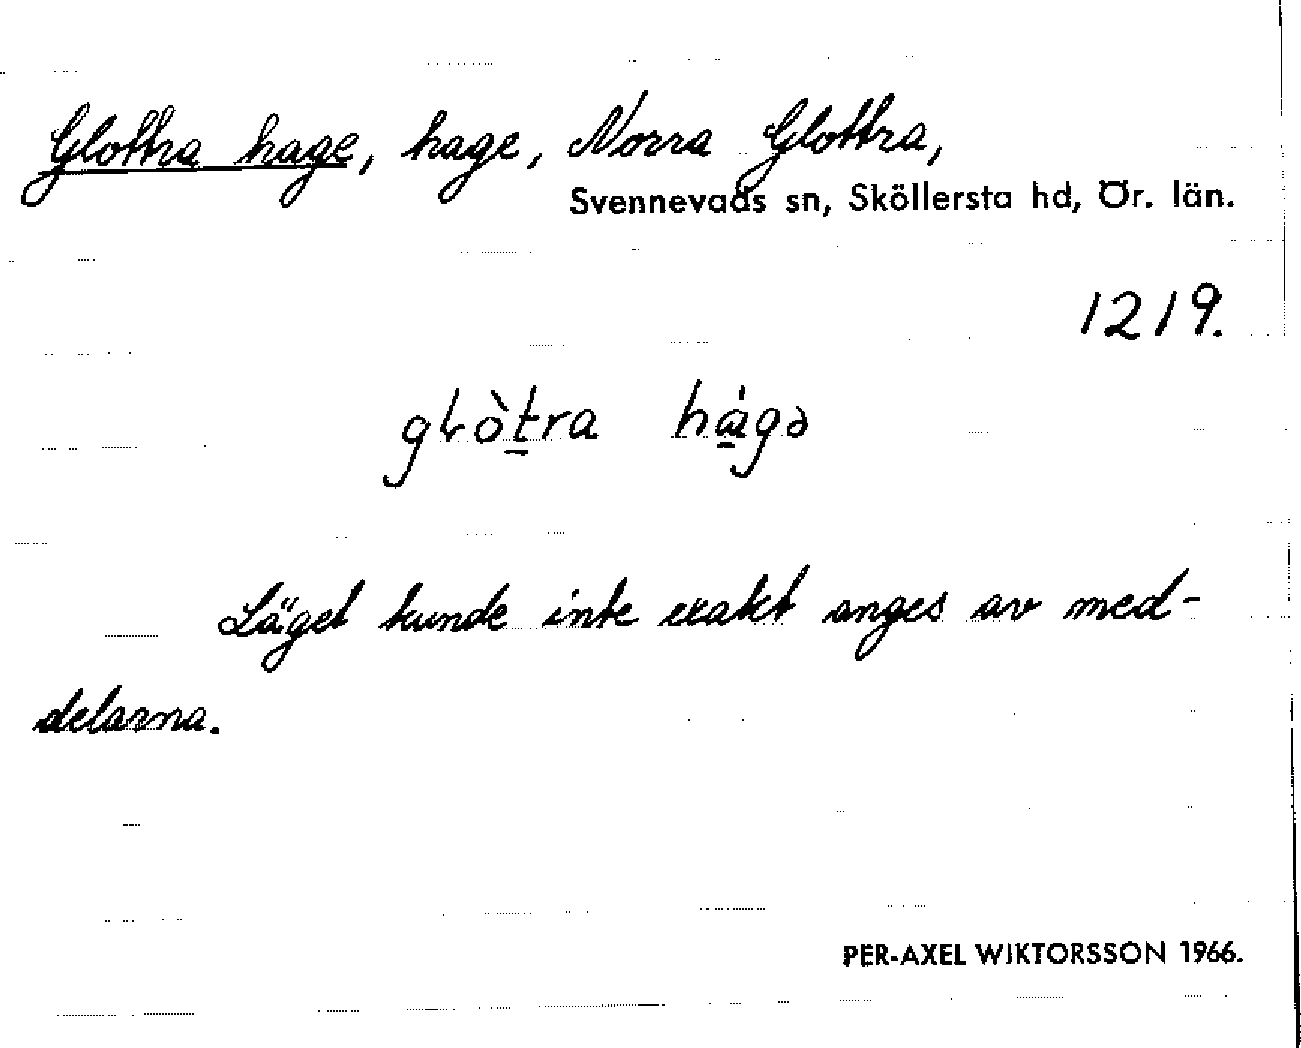 Glottra hage, hage, Norra Glottra,
Svennevads sn, Sköllersta hd, Ör. län.
1219.
gɫòt̠ra há̠gə
Läget kunde inte exakt anges av med-
delarna.
PER-AXEL WIKTORSSON 1966.